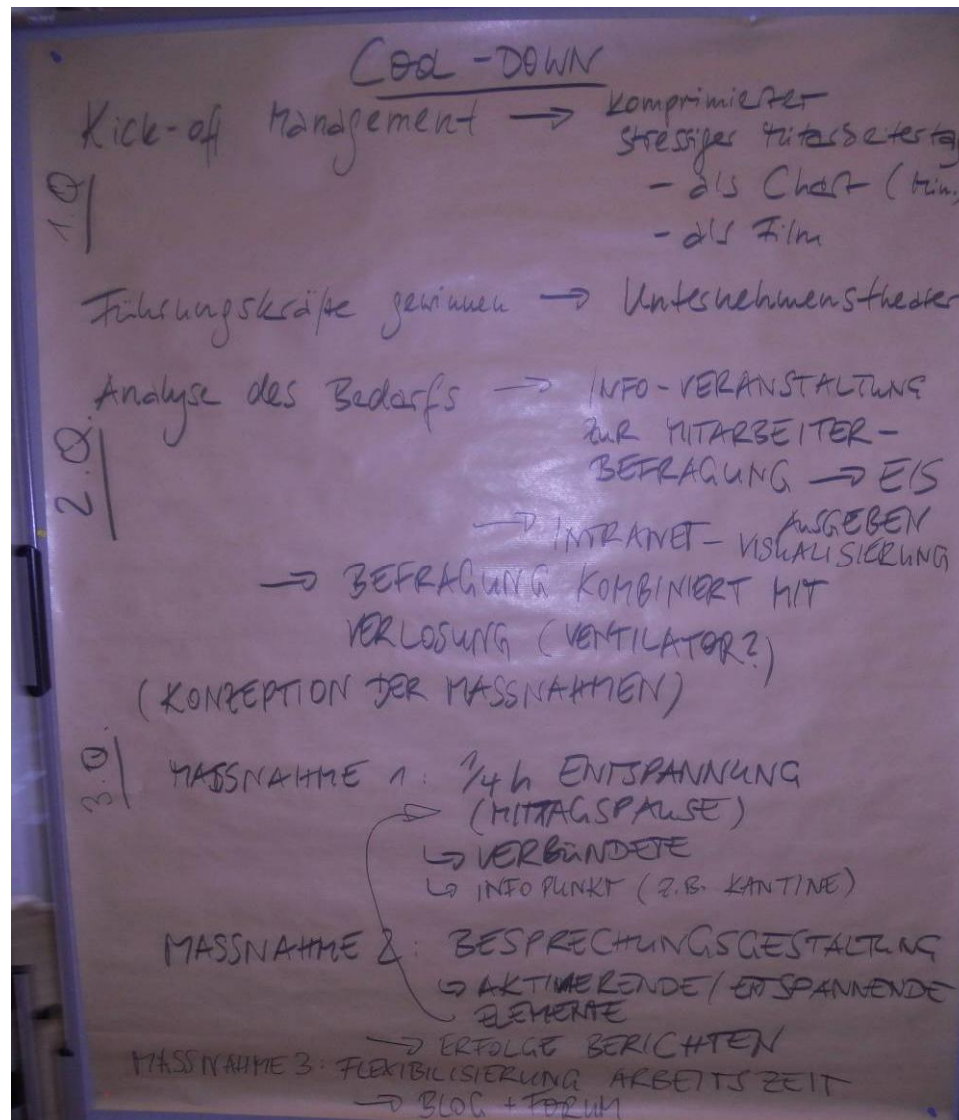 COOL-DOWN
Kick-off Management → komprimierter
stressiger Mitarbeitertag
1.Q
- als Chart (Min.
- als Film
Führungskräfte gewinnen → Unternehmenstheater
Analyse des Bedarfs → INFO-VERANSTALTUNG
ZUR MITARBEITER-
2.Q.
BEFRAGUNG → EIS
AUSGEBEN
→ INTRANET-VISUALISIERUNG
→ BEFRAGUNG KOMBINIERT MIT
VERLOSUNG (VENTILATOR?)
(KONZEPTION DER MASSNAHMEN)
3.Q.
MASSNAHME 1: 1/4 h ENTSPANNUNG
(MITTAGSPAUSE)
↳ VERBÜNDETE
↳ INFOPUNKT (Z.B. KANTINE)
MASSNAHME 2: BESPRECHUNGSGESTALTUNG
↳ AKTIVIERENDE/ENTSPANNENDE
ELEMENTE
→ ERFOLGE BERICHTEN
MASSNAHME 3: FLEXIBILISIERUNG ARBEITSZEIT
→ BLOG + FORUM